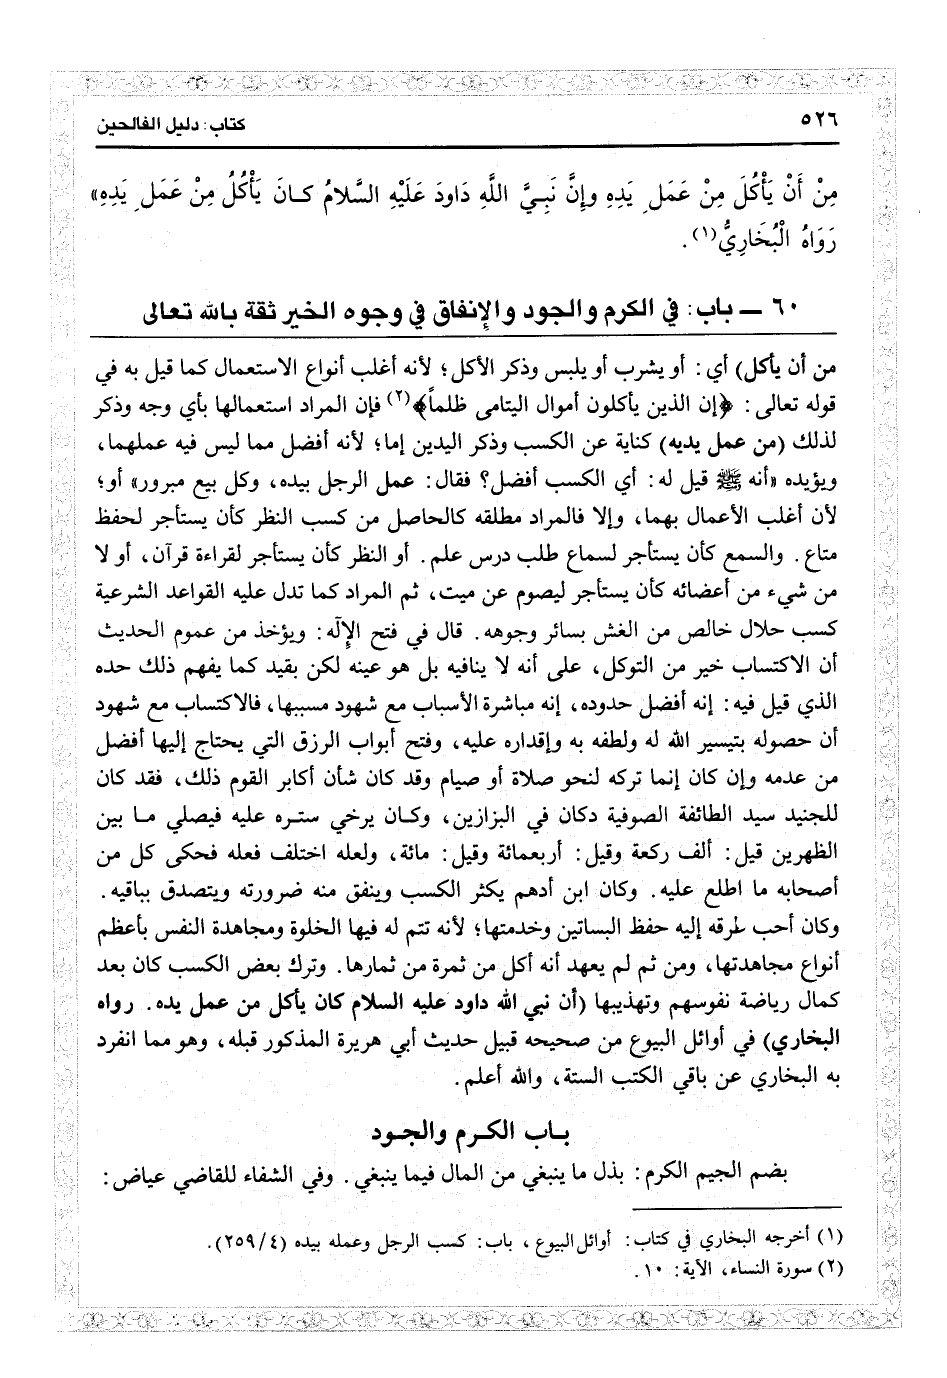 ٥٢٦
كتاب: دليل الفالحين
مِنْ أَنْ يَأْكُلَ مِنْ عَمَلِ يَدِهِ وإِنَّ نَبِيَّ اللَّهِ دَاودَ عَلَيْهِ السَّلامُ كـانَ يَأْكُلُ مِنْ عَمَلِ يَدِهِ»
رَوَاهُ الْبُخَارِيُّ(١).
٦٠ ــ باب: في الكرم والجود والإنفاق في وجوه الخير ثقة بالله تعالى
من أن يأكل) أي: أو يشرب أو يلبس وذكر الأكل؛ لأنه أغلب أنواع الاستعمال كما قيل به في
قوله تعالى: ﴿إن الذين يأكلون أموال اليتامى ظلماً﴾(٢) فإن المراد استعمالها بأي وجه وذكر
لذلك (من عمل يديه) كناية عن الكسب وذكر اليدين إما؛ لأنه أفضل مما ليس فيه عملهما،
ويؤيده «أنه ﷺ قيل له: أي الكسب أفضل؟ فقال: عمل الرجل بيده، وكل بيع مبرور» أو؛
لأن أغلب الأعمال بهما، وإلا فالمراد مطلقه كالحاصل من كسب النظر كأن يستأجر لحفظ
متاع. والسمع كأن يستأجر لسماع طلب درس علم. أو النظر كأن يستأجر لقراءة قرآن، أو لا
من شيء من أعضائه كأن يستأجر ليصوم عن ميت، ثم المراد كما تدل عليه القواعد الشرعية
كسب حلال خالص من الغش بسائر وجوهه. قال في فتح الإلٰه: ويؤخذ من عموم الحديث
أن الاكتساب خير من التوكل، على أنه لا ينافيه بل هو عينه لكن بقيد كما يفهم ذلك حده
الذي قيل فيه: إنه أفضل حدوده، إنه مباشرة الأسباب مع شهود مسببها، فالاكتساب مع شهود
أن حصوله بتيسير الله له ولطفه به وإقداره عليه، وفتح أبواب الرزق التي يحتاج إليها أفضل
من عدمه وإن كان إنما تركه لنحو صلاة أو صيام وقد كان شأن أكابر القوم ذلك، فقد كان
للجنيد سيد الطائفة الصوفية دكان في البزازين، وكـان يرخي ستـره عليه فيصلي مـا بين
الظهرين قيل: ألف ركعة وقيل: أربعمائة وقيل: مائة، ولعله اختلف فعله فحكى كل من
أصحابه ما اطلع عليه. وكان ابن أدهم يكثر الكسب وينفق منه ضرورته ويتصدق بباقيه.
وكان أحب طرقه إليه حفظ البساتين وخدمتها؛ لأنه تتم له فيها الخلوة ومجاهدة النفس بأعظم
أنواع مجاهدتها، ومن ثم لم يعهد أنه أكل من ثمرة من ثمارها. وترك بعض الكسب كان بعد
كمال رياضة نفوسهم وتهذيبها (أن نبي الله داود عليه السلام كان يأكل من عمل يده. رواه
البخاري) في أوائل البيوع من صحيحه قبيل حديث أبي هريرة المذكور قبله، وهو مما انفرد
به البخاري عن باقي الكتب الستة، والله أعلم.
بـاب الكـرم والجـود
بضم الجيم الكرم: بذل ما ينبغي من المال فيما ينبغي. وفي الشفاء للقاضي عياض:
(١) أخرجه البخاري في كتاب: أوائل البيوع، باب: كسب الرجل وعمله بيده (٢٥٩/٤).
(٢) سورة النساء، الآية: ١٠.